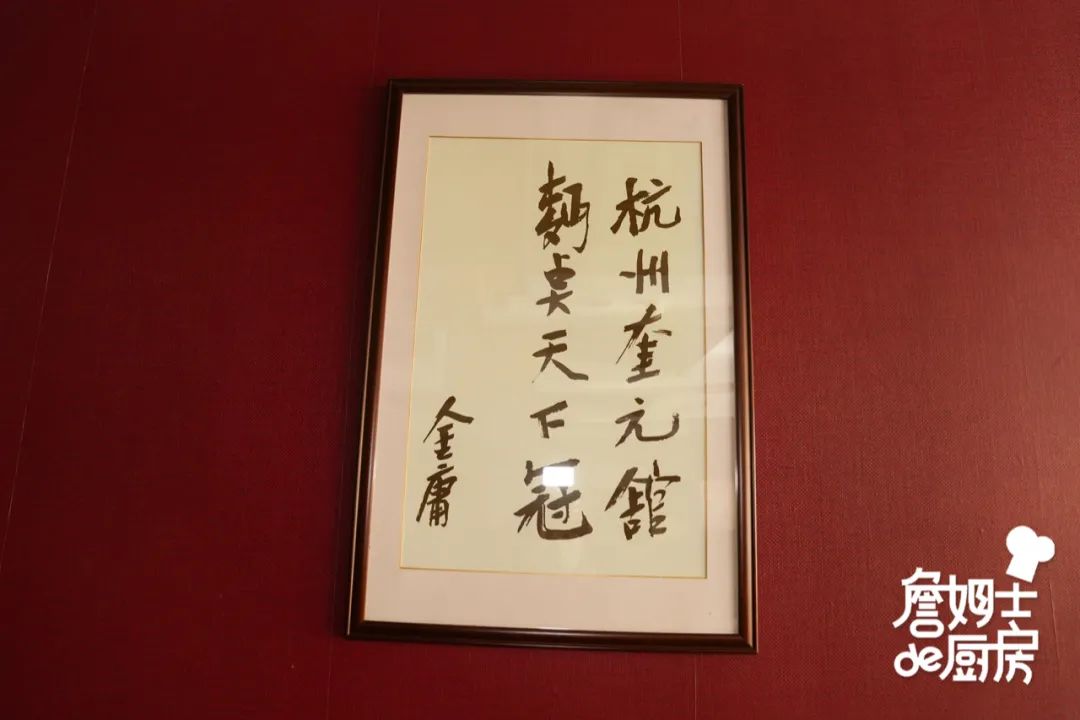 杭州奎元舘
麪点天下冠
金庸
詹姆士
de厨房